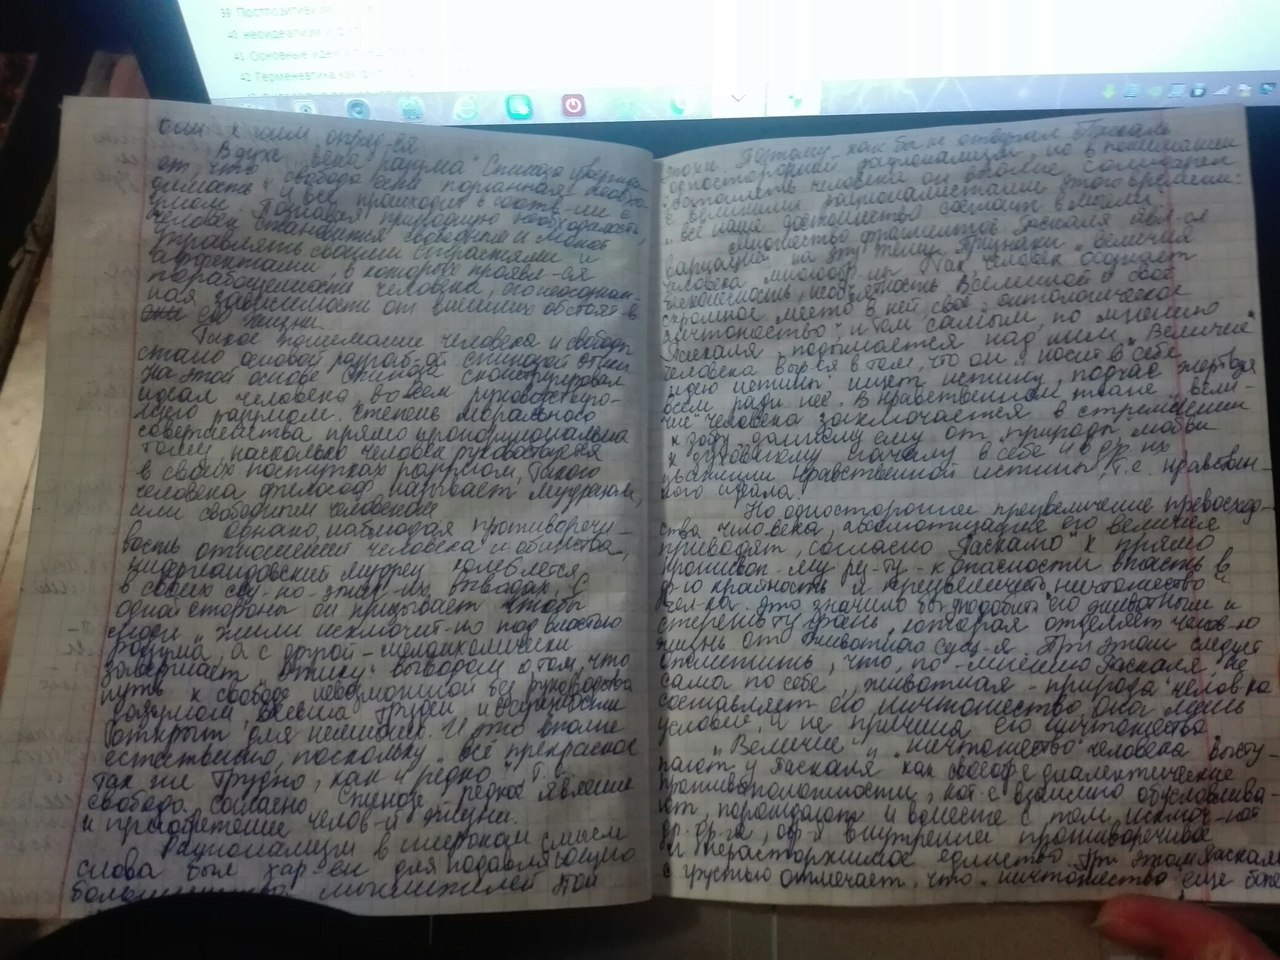 39. Постпозитивизм
40. неоидеализм и
41. Основные идеи
42. Герменевтика как
они к ним опред-ся
В духе "века разума" Спиноза утвержда-
ет, что "свобода есть познанная необхо-
димость" и все происходит в соотв-ии с
умом. Познавая природную необходимость,
человек становится свободным и может
управлять своими страстями и
аффектами, в которых проявл-ся
порабощенность человека, его неосознан-
ная зависимость от внешних обстоят-в
его жизни.
Такое понимание человека и свободы
стало основой разраб-ой Спинозой этики
На этой основе Спиноза сконструировал
идеал человека, во всем руководствую-
щегося разумом. Степень морального
совершенства прямо пропорциональна
тому, насколько человек руководствуется
в своих поступках разумом. Такого
человека философ называет мудрецом,
или свободным человеком
Однако, наблюдая противоречи-
вость отношений человека и общества,
нидерландский мудрец колеблется
в своих выводах. С
одной стороны он призывает чтобы
люди "жили исключит-но под властью
разума, а с другой - меланхолически
завершает "Этику" выводом о том, что
путь к свободе невозможной без руководства
разумом, весьма труден и в сущности
открыт для немногих. И это вполне
естественно, поскольку "всё прекрасное
так же трудно, как и редко". Т.е.
свобода согласно Спинозе, редкое явление
и приобретение челов-й жизни.
Рационализм в широком смысле
слова был хар-ен для подавляющего
большинства мыслителей той
эпохи. Поэтому, как бы не отвергал Паскаль
односторонний рационализм, но в понимании
человека он вполне солидарен
с великими рационалистами этого времени:
"все наше достоинство состоит в мысли"
Множество фрагментов Паскаля явл-ся
вариацией на эту тему. Признаки "величия
человека" многообр-ны. Так, человек осознает
бесконечность, необъятность Вселенной и своё
скромное место в ней, своё "онтологическое
ничтожество" и тем самым, по мнению
Паскаля подымается над ним. "Величие"
человека выр-ся в том, что он "носит в себе
идею истины" ищет истину, подчас жертвуя
всем ради неё. В нравственном плане "вели-
чие" человека заключается в стремлении
к добру, данному ему от природы, любви
к духовному началу в себе и в др. их
уважении нравственной истины, т.е. нравствен-
ного идеала.
Но одностороннее преувеличение превосход-
ства человека, абсолютизация его величия
приводят, согласно Паскалю к прямо
противоп-му ре-ту - к опасности впасть в
др-ю крайность и преувеличить "ничтожество"
чел-ка. Это значило бы подобить его животным и
стереть ту грань, которая отделяет челов-ю
жизнь от животного сущ-я. При этом следует
отметить, что, по мнению Паскаля, не
сама по себе "животная" природа человека
составляет его ничтожество, она лишь
условие, а не причина его ничтожества
"Величие" и "ничтожество" человека высту-
пают у Паскаля как своеобр. диалектические
противоположности, кот-е взаимно обусловлива-
ют, порождают и вместе с тем исключ-ют
др-др-га, обр-я внутренне противоречивое
и нерасторжимое единство. При этом Паскаль
с грустью отмечает, что "ничтожество" еще более